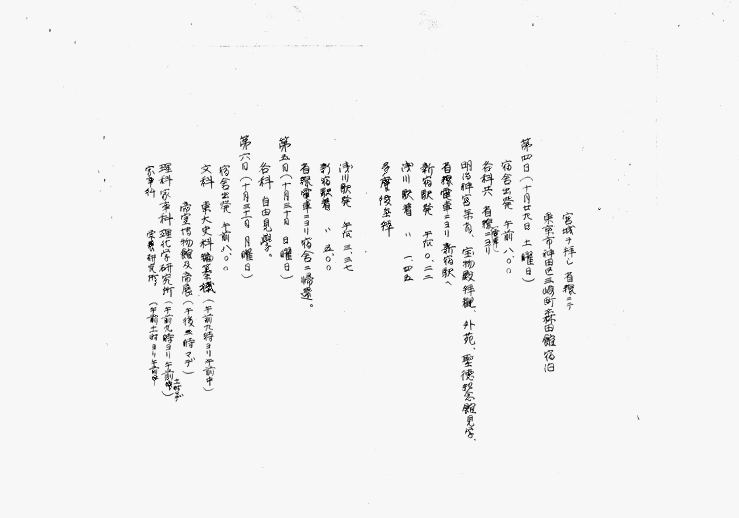 宮城ヲ拝し 省線ニテ
東京市神田区三崎町森田館宿泊
第四日(十月廿九日 土曜日)
宿舎出発 午前八、〇〇
各科共 省線ニヨリ
明治神宮参拝、宝物殿拝観、外苑、聖徳記念館見学、
省線電車ニヨリ新宿駅ヘ
新宿駅発 午后〇、二二
浅川駅着 〃 一、四五
多摩陵参拝
浅川駅発 午后三、三七
新宿駅着 〃 五、〇〇
省線電車ニヨリ宿舎ニ帰還。
第五日(十月三十日 日曜日)
各科 自由見学。
第六日(十月三十一日 月曜日)
宿舎出発 午前八、〇〇
文科 東大史料編纂 (午前九時ヨリ午前中)
帝室博物館及帝展(午後三時マデ)
理科家事科理化学研究所(午前九時ヨリ午前
家事科 栄養研究所、(午前十時ヨリ